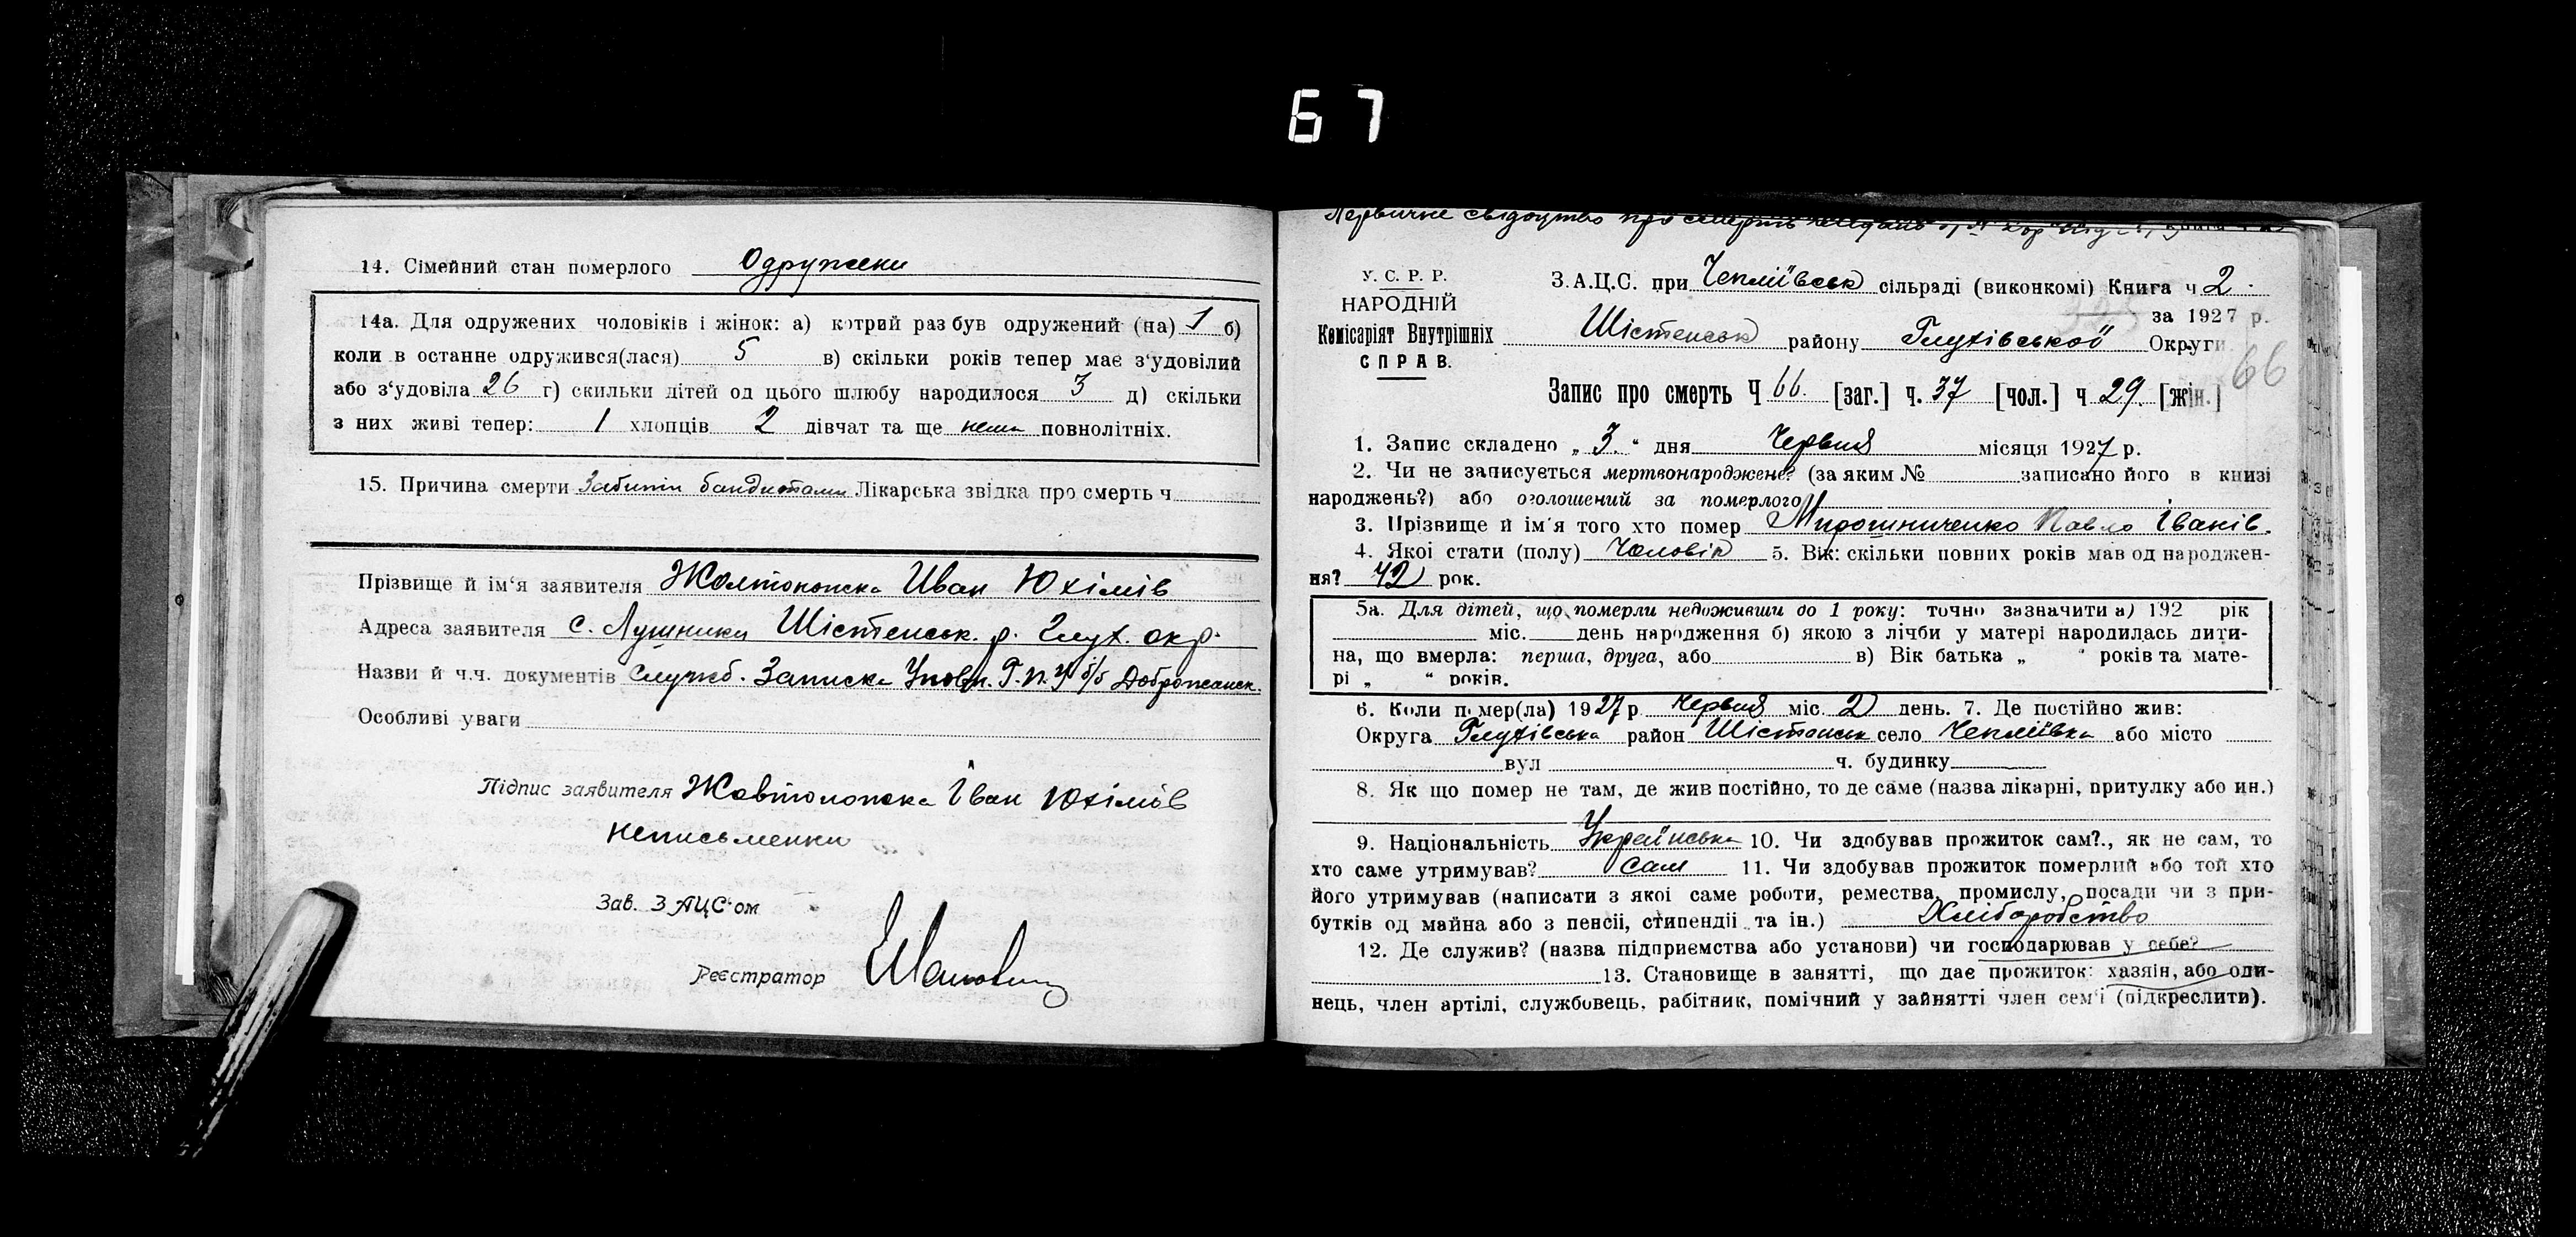 67
14. Сімейний стан померлого Одружени
14а. Для одружених чоловіків і жінок: а) котрий раз був одружений (на) 1 б)
коли в останне одружився(лася) 5 в) скільки років тепер має з'удовілий
або з'удовіла 26 г) скильки дітей од цього шлюбу народилося 3 д) скільки
з них живі тепер: 1 хлопців 2 дівчат та ще нема повнолітніх.
15. Причина смерти Забити бандитами Лікарська звідка про смерть ч.
Прізвище й ім'я заявителя Жолтоножка Иван Юхімів
Адреса заявителя с. Лушники Шістенськ. р. Глух. окр.
Назви й ч.ч. документів Служб. Записка Уповн. Г.П.У б/б Доброжанск.
Особливі уваги
Підпис заявителя Жовтоножка Іван Юхімів
неписьменни
Зав. ЗАЦС'ом
Реєстратор
Первичне свідоцтво про смерть
У. С. Р. Р.
НАРОДНІЙ
Комісаріят Внутрішніх
СПРАВ.
З.А.Ц.С. при Чепліївськ сільраді (виконкомі) Книга ч 2
за 1927 р.
Шістенськ району Глухівської Округи
66
Запис про смерть Ч 66. [заг.] ч. 37 [чол.] ч 29. [жін.]
1. Запис складено „ 3. “ дня Червня місяця 1927 р.
2. Чи не записується мертвонароджене? (за яким № записано його в книзі
народжень?) або оголошений за померлого
3. Прізвище й ім'я того хто помер Мирошниченко Павло Іванів.
4. Якоі стати (полу) Чоловік 5. Вік: скільки повних років мав од народжен-
ня? 42 рок.
5а. Для дітей, що померли недоживши до 1 року: точно зазначити а) 192 рік
міс. день народження б) якою з лічби у матері народилась дити-
на, що вмерла: перша, друга, або в) Вік батька „ “ років та мате-
рі „ “ років.
6. Коли помер(ла) 1927 р Червня міс. 2 день. 7. Де постійно жив:
Округа Глухівська район Шістенськ село Чепліївка або місто
вул ч. будинку
8. Як що помер не там, де жив постійно, то де саме (назва лікарні, притулку або ин.)
9. Національність Українська 10. Чи здобував прожиток сам?., як не сам, то
хто саме утримував? Сам 11. Чи здобував прожиток померлий або той хто
його утримував (написати з якоі саме роботи, ремества, промислу, посади чи з при-
бутків од майна або з пенсіі, стипендіі та ін.) Хліборобство
12. Де служив? (назва підприємства або установи) чи господарював у себе?
13. Становище в занятті, що дає прожиток: хазяін, або оди-
нець, член артілі, службовець, рабітник, помічний у зайнятті член сем'і (підкреслити).